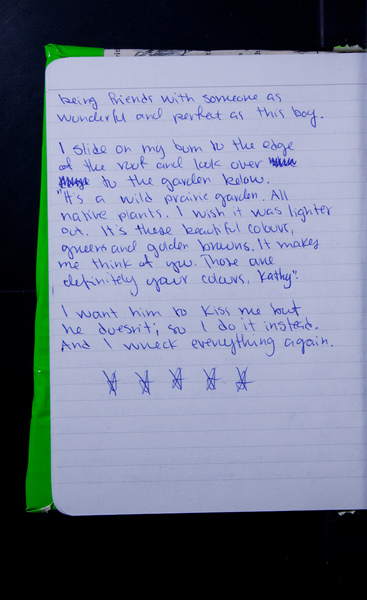 being friends with someone as
wonderful and perfect as this boy.
I slide on my bum to the edge
of the roof and look over
to the garden below.
"It's a wild prairie garden. All
native plants. I wish it was lighter
out. It's these beautiful colours,
greens and golden browns. It makes
me think of you. Those are
definitely your colours, Kathy".
I want him to kiss me but
he doesn't; so I do it instead.
And I wreck everything again.